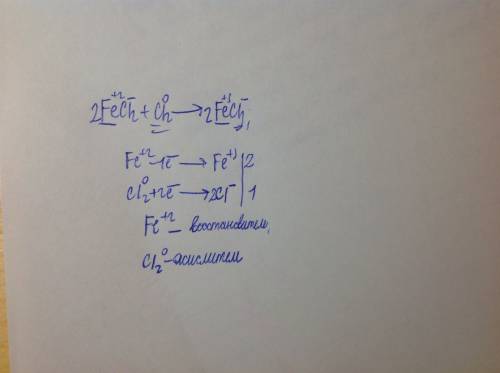 2Fe⁺²Cl₂⁻ + Cl₂⁰ → 2Fe⁺³Cl₃⁻
Fe⁺² -1e̅ → Fe⁺³ | 2
Cl₂⁰ +2e̅ → 2Cl⁻ | 1
Fe⁺² – восстановитель,
Cl₂⁰ – окислитель